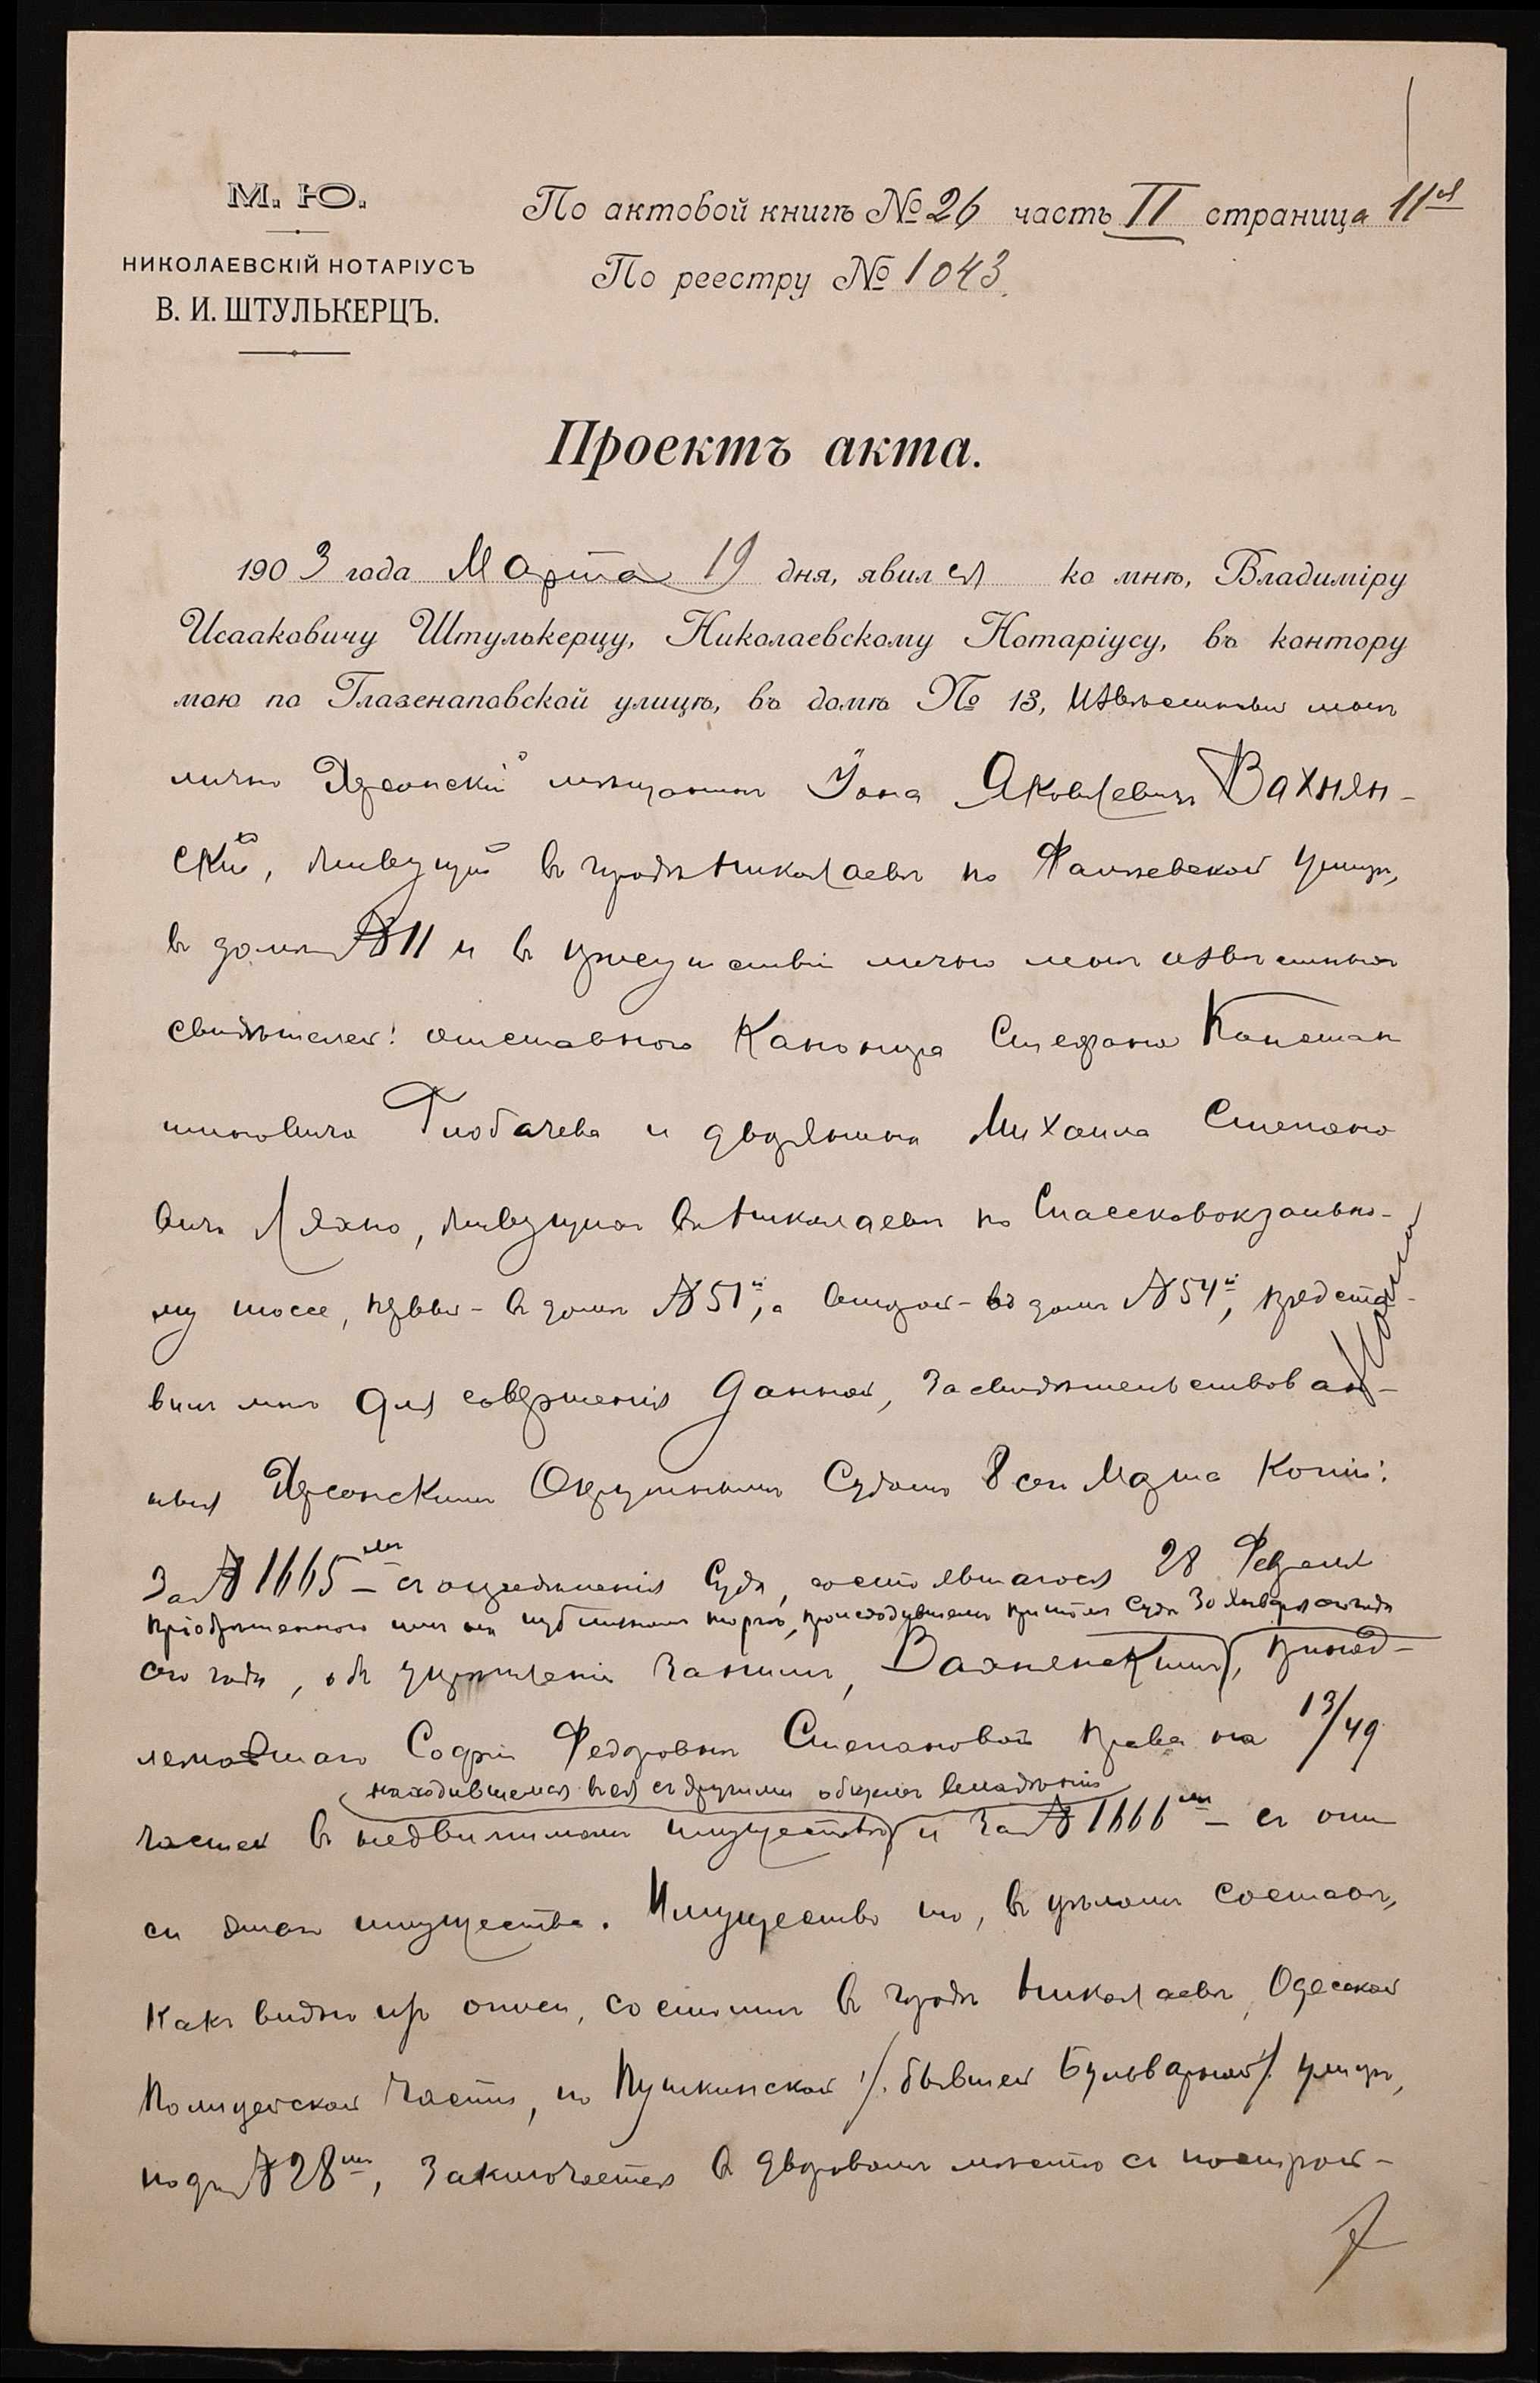 М. Ю.
НИКОЛАЕВСКІЙ НОТАРІУСЪ
В. И. ШТУЛЬКЕРЦЪ.
По актовой книгѣ № 26 часть II страница 11ая
По реестру № 1043.
Проектъ акта.
1903 года Марта 19 дня, явился ко мнѣ, Владиміру
Исааковичу Штулькерцу, Николаевскому Нотаріусу, въ контору
мою по Глазенаповской улицѣ, въ домѣ № 13, извѣстный мнѣ
лично Херсонскій мѣщанинъ Іона Яковлевичъ Вахнян-
скій, живущій въ городѣ Николаевѣ по Фалѣевской улицѣ,
въ домѣ № 11 и въ присутствіи лично мнѣ извѣстныхъ
свидѣтелей: отставного Канонира Стефана Констан
тиновича Глобачева и дворянина Михаила Степано
вича Ляхно, живущихъ въ Николаевѣ по Спассковокзально-
му шоссе, первый - въ домѣ № 51й, а второй - въ домѣ № 54й, предста-
вилъ мнѣ для совершенія данной, засвидѣтельствован-
ныя Херсонскимъ Окружнымъ Судомъ 8 сего Марта копіи:
за № 1665мъ - съ опредѣленія Суда, состоявшагося 28 Февраля
пріобрѣтеннаго имъ на публичномъ торгѣ, происходившемъ при томъ Судѣ 30 Января сего года
сего года, объ укрѣпленіи за нимъ, Вахнянскимъ, принад-
лежавшаго Софіи Федоровнѣ Степановой права на 13/49
находившемся въ ея съ другими общемъ владѣніи
частей въ недвижимомъ имуществѣ и за № 1666мъ - съ опи
си этого имущества. Имущество это, въ цѣломъ составѣ,
какъ видно изъ описи, состоитъ въ городѣ Николаевѣ, Одесской
Полицейской части, по Пушкинской /. бывшей Бульварной ./ улицѣ,
подъ № 28мъ, заключается въ дворовомъ мѣстѣ съ построй-